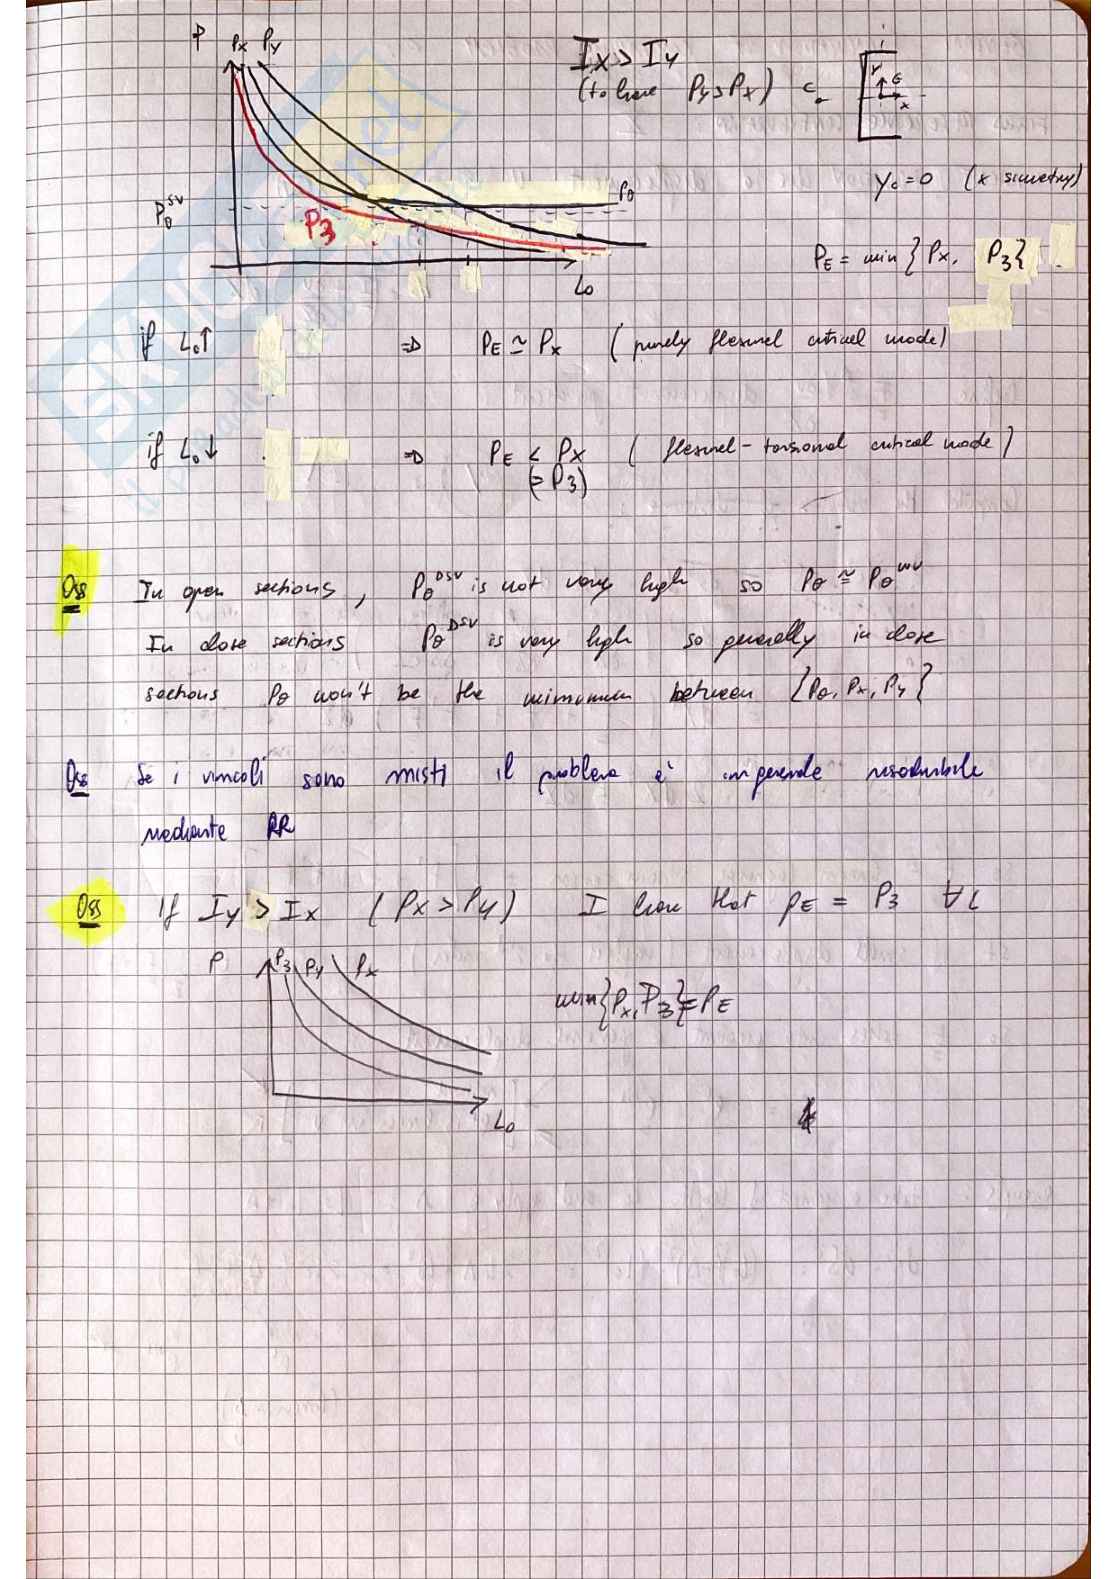 P Px Py
Ix > Iy
(to have Py>Px) C
y G x
Pθ
Pθ^SV
P3
L0
yc=0 (x simetry)
PE = min { Px, P3 }
if L0↑ ⇒ PE ≃ Px (purely flexural critical mode)
if L0↓ ⇒ PE < Px (flexural-torsional critical mode)
(= P3)
Oss In open sections, Pθ^DSV is not very high so Pθ ≅ Pθ^ωω
In close sections Pθ^DSV is very high so generally in close
sections Pθ won't be the minimum between {Pθ, Px, Py}
Oss Se i vincoli sono misti il problema è in generale risolvibile
mediante RR
Oss If Iy > Ix (Px > Py) I have that PE = P3 ∀L
P P3 Py Px
min{Px, P3}=PE
L0